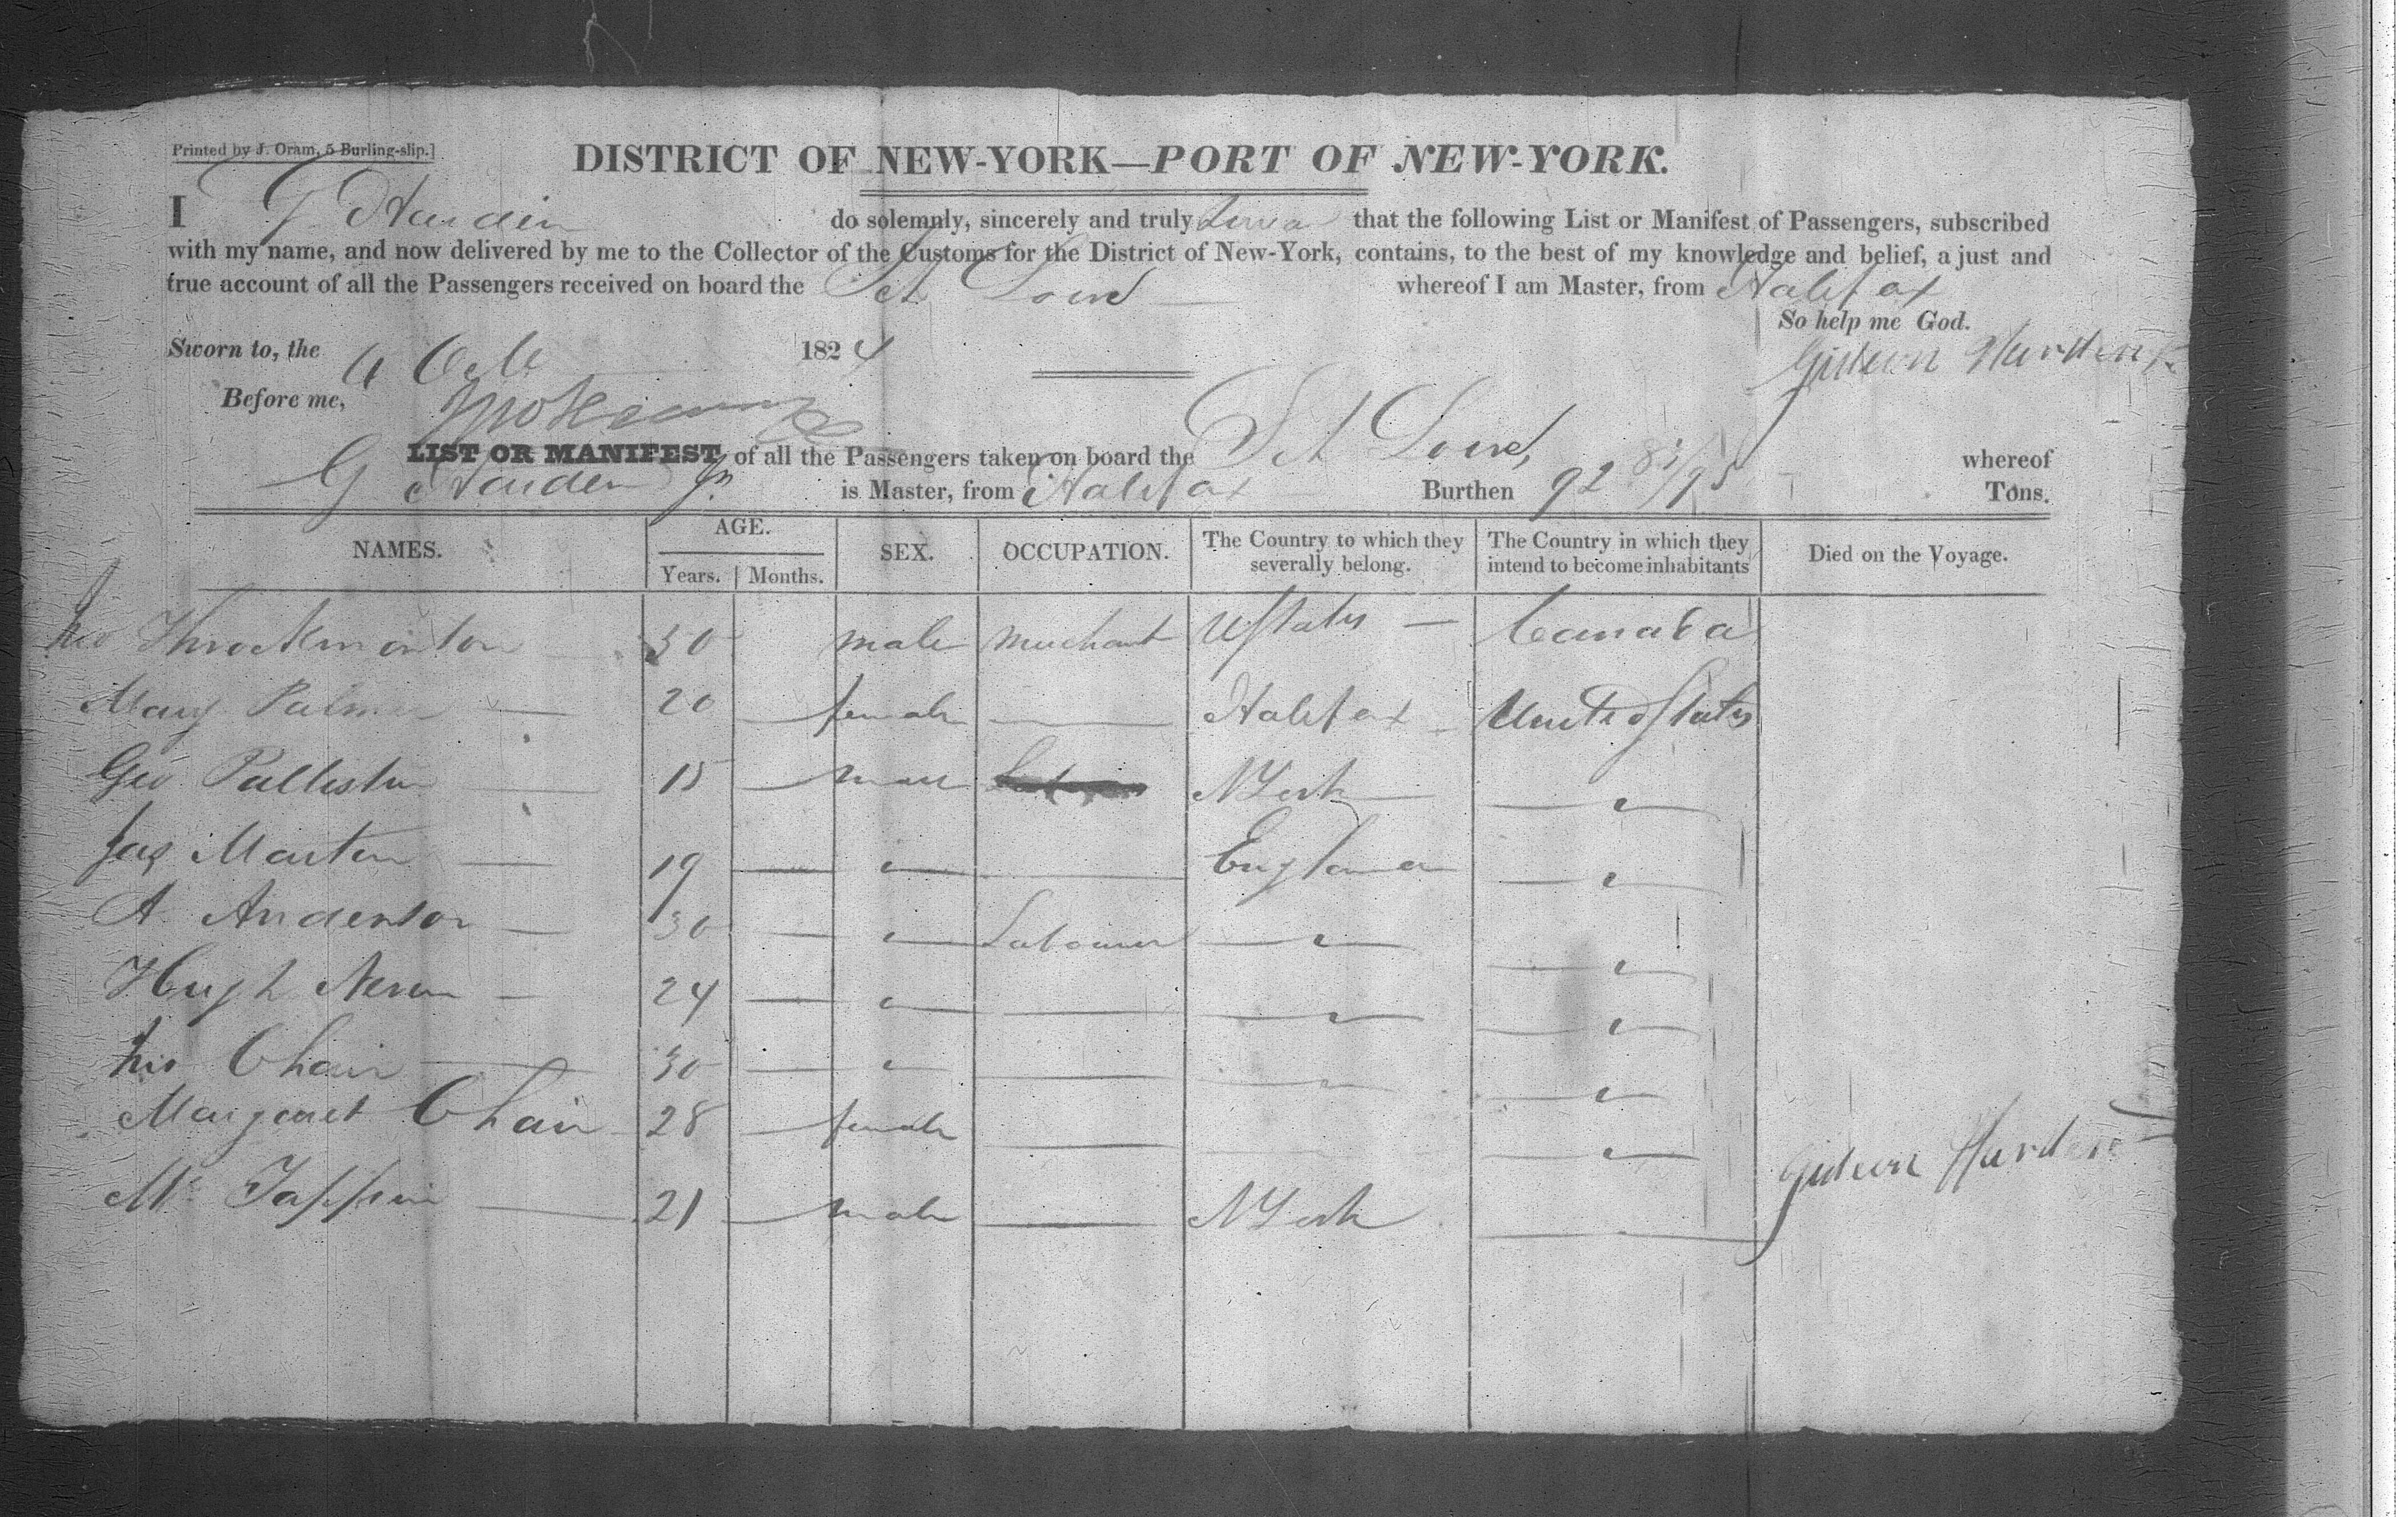 Printed by J. Oram, 5 Burling-slip.]
DISTRICT OF NEW-YORK—PORT OF NEW-YORK.
I G Harden do solemnly, sincerely and truly swear that the following List or Manifest of Passengers, subscribed
with my name, and now delivered by me to the Collector of the Customs for the District of New-York, contains, to the best of my knowledge and belief, a just and
true account of all the Passengers received on board the Sch whereof I am Master, from Halifax
So help me God.
Sworn to, the 4 Oct 1824
Gideon Harden Jr
Before me,
LIST OR MANIFEST of all the Passengers taken on board the Sch whereof
G Harden Jr is Master, from Halifax Burthen 92 /95 Tons.
NAMES. AGE. SEX. OCCUPATION. The Country to which they severally belong. The Country in which they intend to become inhabitants Died on the Voyage.
Years. Months.
Throckmorton 30 male merchant UStates — Canada
Mary Palmer — 20 — female — Halifax United States
Geo Pallister — 15 — male NYork — " —
Jas Martin — 19 — " — England — " —
A. Anderson — 30 — " Labourer — " — — " —
Hugh — 24 — " — — " — — " —
Chair — 30 — " — — " — — " —
Margaret Chair 28 — female — — " —
Mr Tappin — 21 — male — NYork —
Gideon Harden Jr